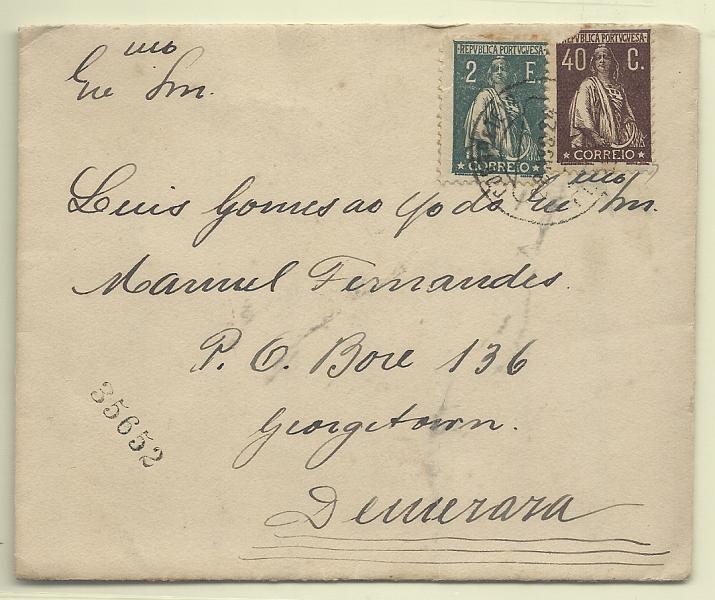 REPVBLICA PORTVGVESA
2 E.
CORREIO
REPVBLICA PORTVGVESA
40 C.
CORREIO
mo
Sm.
mo
Luis Gomes ao Sm.
Manuel Fernandes.
P. O. Box 136
Georgetown.
Demerara
35652